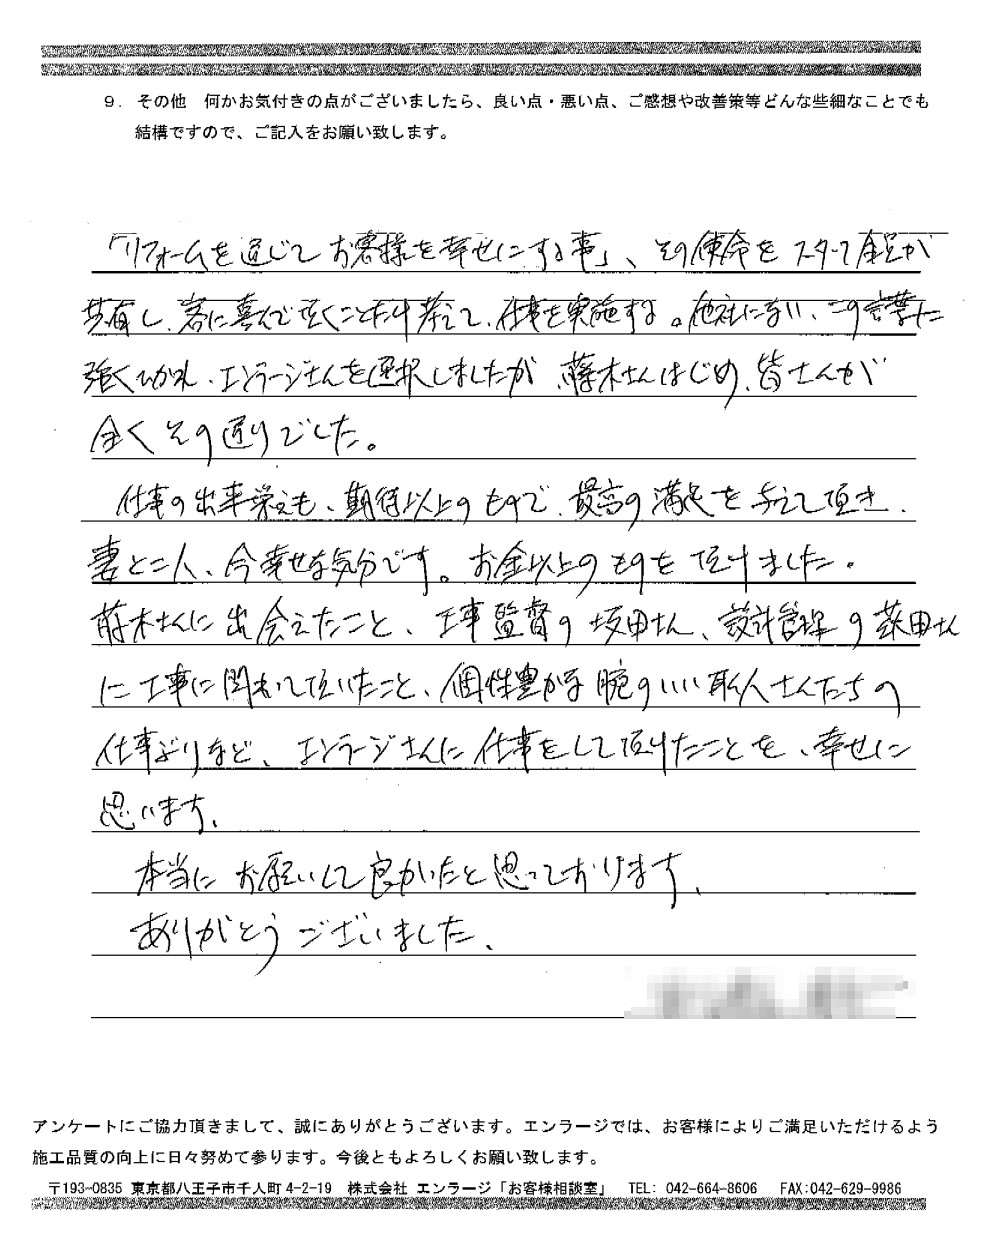 ９．その他　何かお気付きの点がございましたら、良い点・悪い点、ご感想や改善策等どんな些細なことでも
結構ですので、ご記入をお願い致します。
「リフォームを通じてお客様を幸せにする事」、その使命をスタッフ全員が
共有し、客に喜んで頂くことだけ考えて、仕事を実施する。他社にない、この言葉に
強くひかれ、エンラージさんを選択しましたが、蔭木さんはじめ、皆さんが
全くその通りでした。
仕事の出来栄えも、期待以上のもので、最高の満足を与えて頂き、
妻と二人、今幸せな気分です。お金以上のものを頂けました。
蔭木さんに出会えたこと、工事監督の坂田さん、設計管理の 田さん
に工事に関わって頂いたこと、個性豊かな腕のいい職人さんたちの
仕事ぶりなど、エンラージさんに仕事をして頂けたことを、幸せに
思います。
本当にお願いして良かったと思っております。
ありがとうございました。
アンケートにご協力頂きまして、誠にありがとうございます。エンラージでは、お客様によりご満足いただけるよう
施工品質の向上に日々努めて参ります。今後ともよろしくお願い致します。
〒193-0835 東京都八王子市千人町 4-2-19　株式会社 エンラージ「お客様相談室」　TEL: 042-664-8606　FAX:042-629-9986